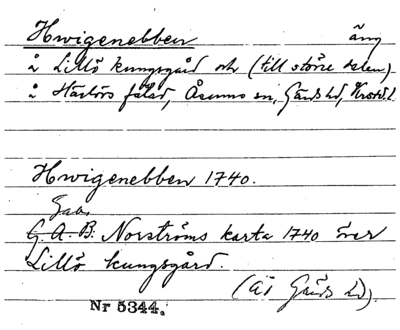 Hwigenebben äng
å Lillö kungsgård och (till större delen)
å Härlövs fälad, Åsums sn, Gärds hd, Kristi. l.
Hwigenebben 1740.
Gab.
G. A. B. Norströms karta 1740 över
Lillö kungsgård.
(Äs Gärds hd).
Nr 5344.